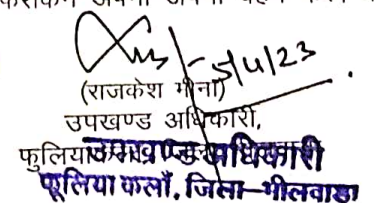 अपना
-5/4/23
(राजकेश मीना)
उपखण्ड अधिकारी,
फुलिया
उपखण्ड अधिकारी
फूलिया कलाँ, जिला-भीलवाडा